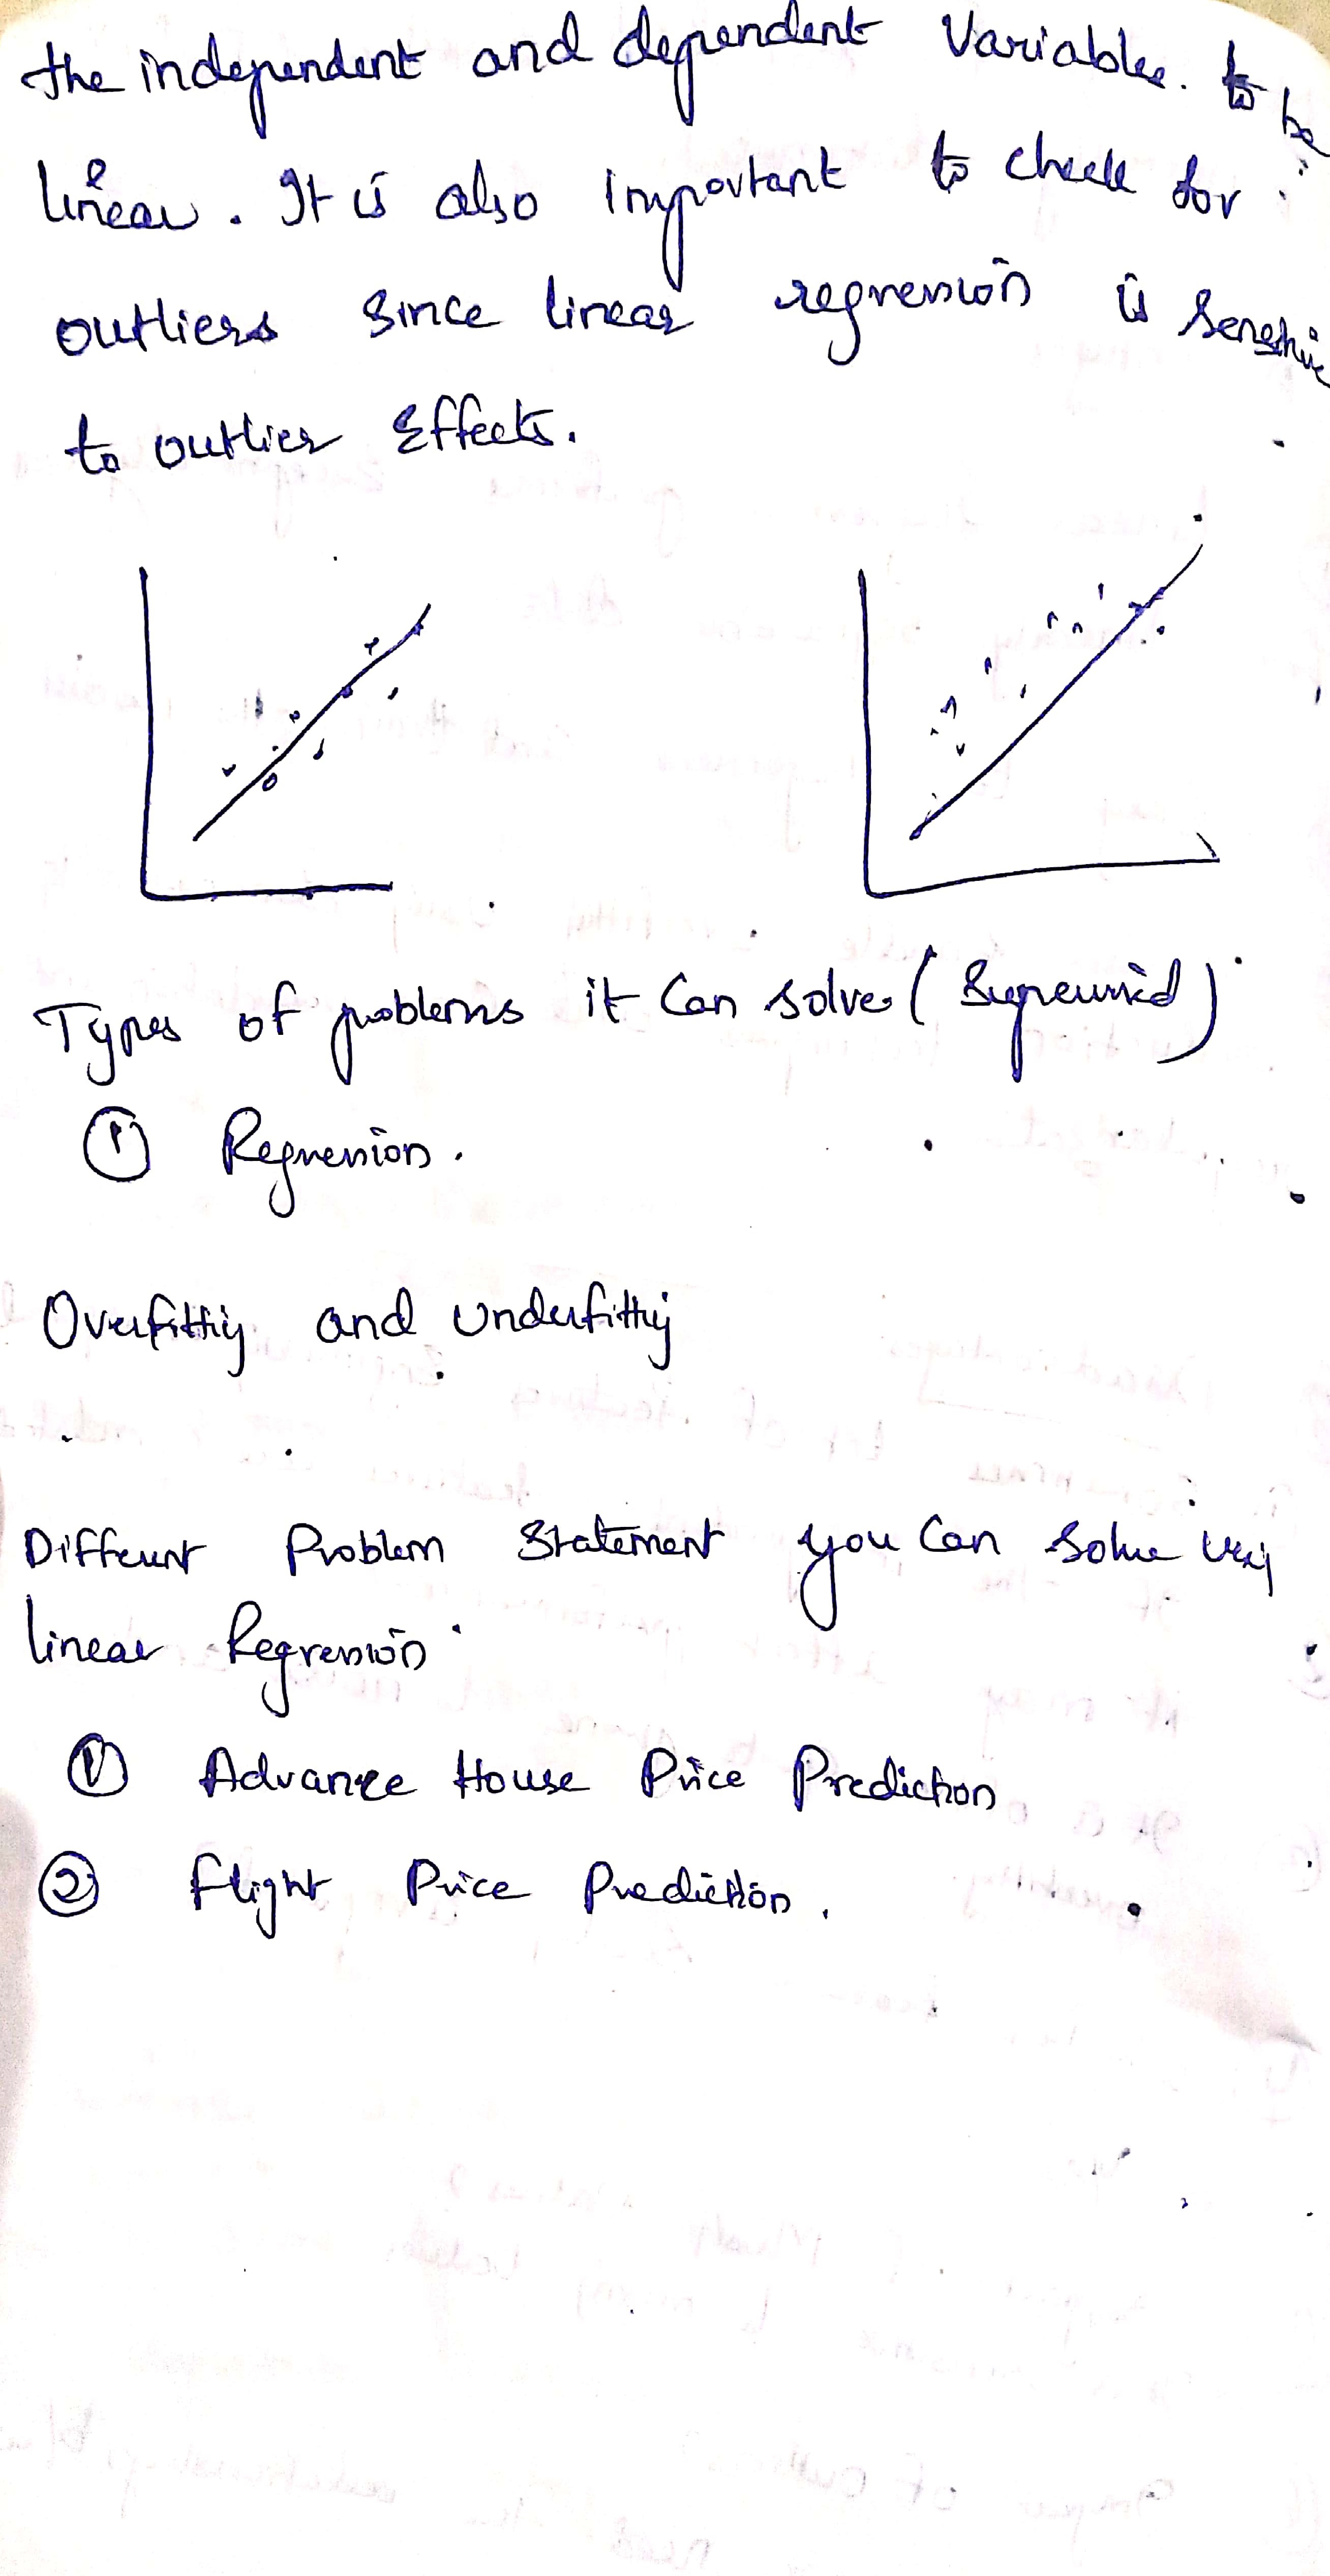 the independent and dependent Variables. to be
linear. It is also important to check for
outliers since linear regression is sensitive
to outlier Effects.
Types of problems it Can solve (Supervised)
① Regression.
Overfitting and Underfitting
Different Problem Statement you Can Solve using
linear Regression
① Advance House Price Prediction
② Flight Price Prediction.